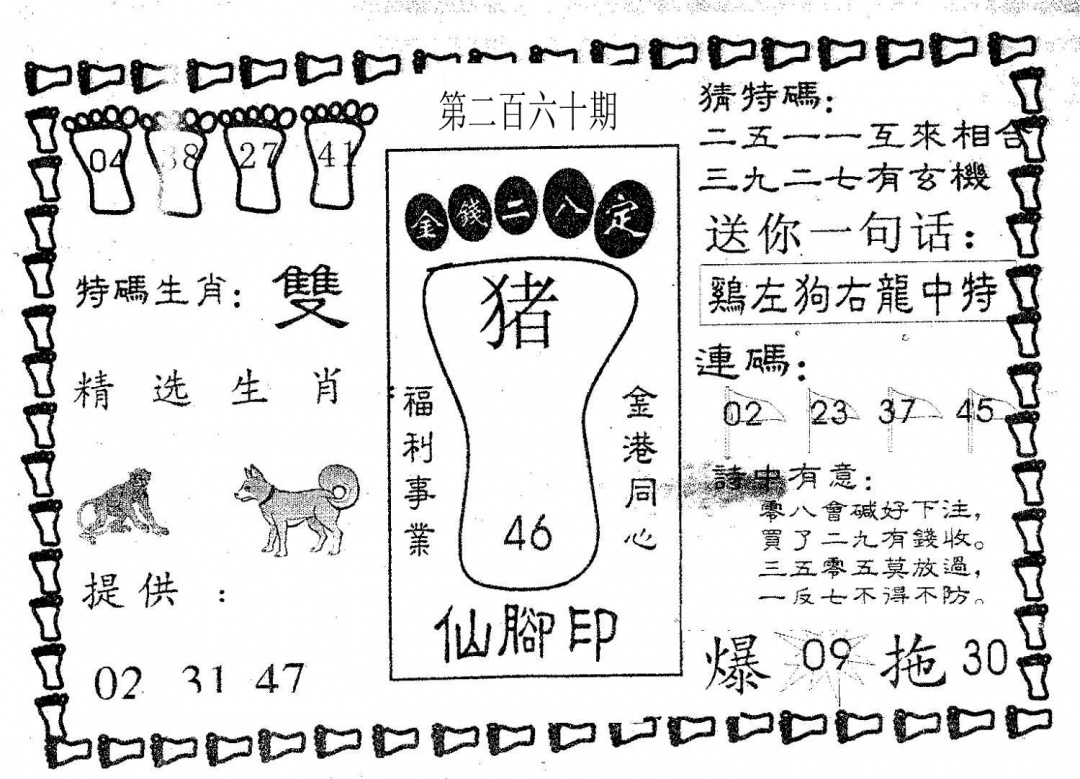 第二百六十期
04 38 27 41
特碼生肖：雙
精选生肖
提供：
02 31 47
金錢二八定
猪
福利事業
金港同心
46
仙腳印
猜特碼：
二五一一互來相合
三九二七有玄機
送你一句话：
鷄左狗右龍中特
連碼：
02 23 37 45
詩中有意：
零八會碱好下注，
買了二九有錢收。
三五零五莫放過，
一反七不得不防。
爆 09 拖 30